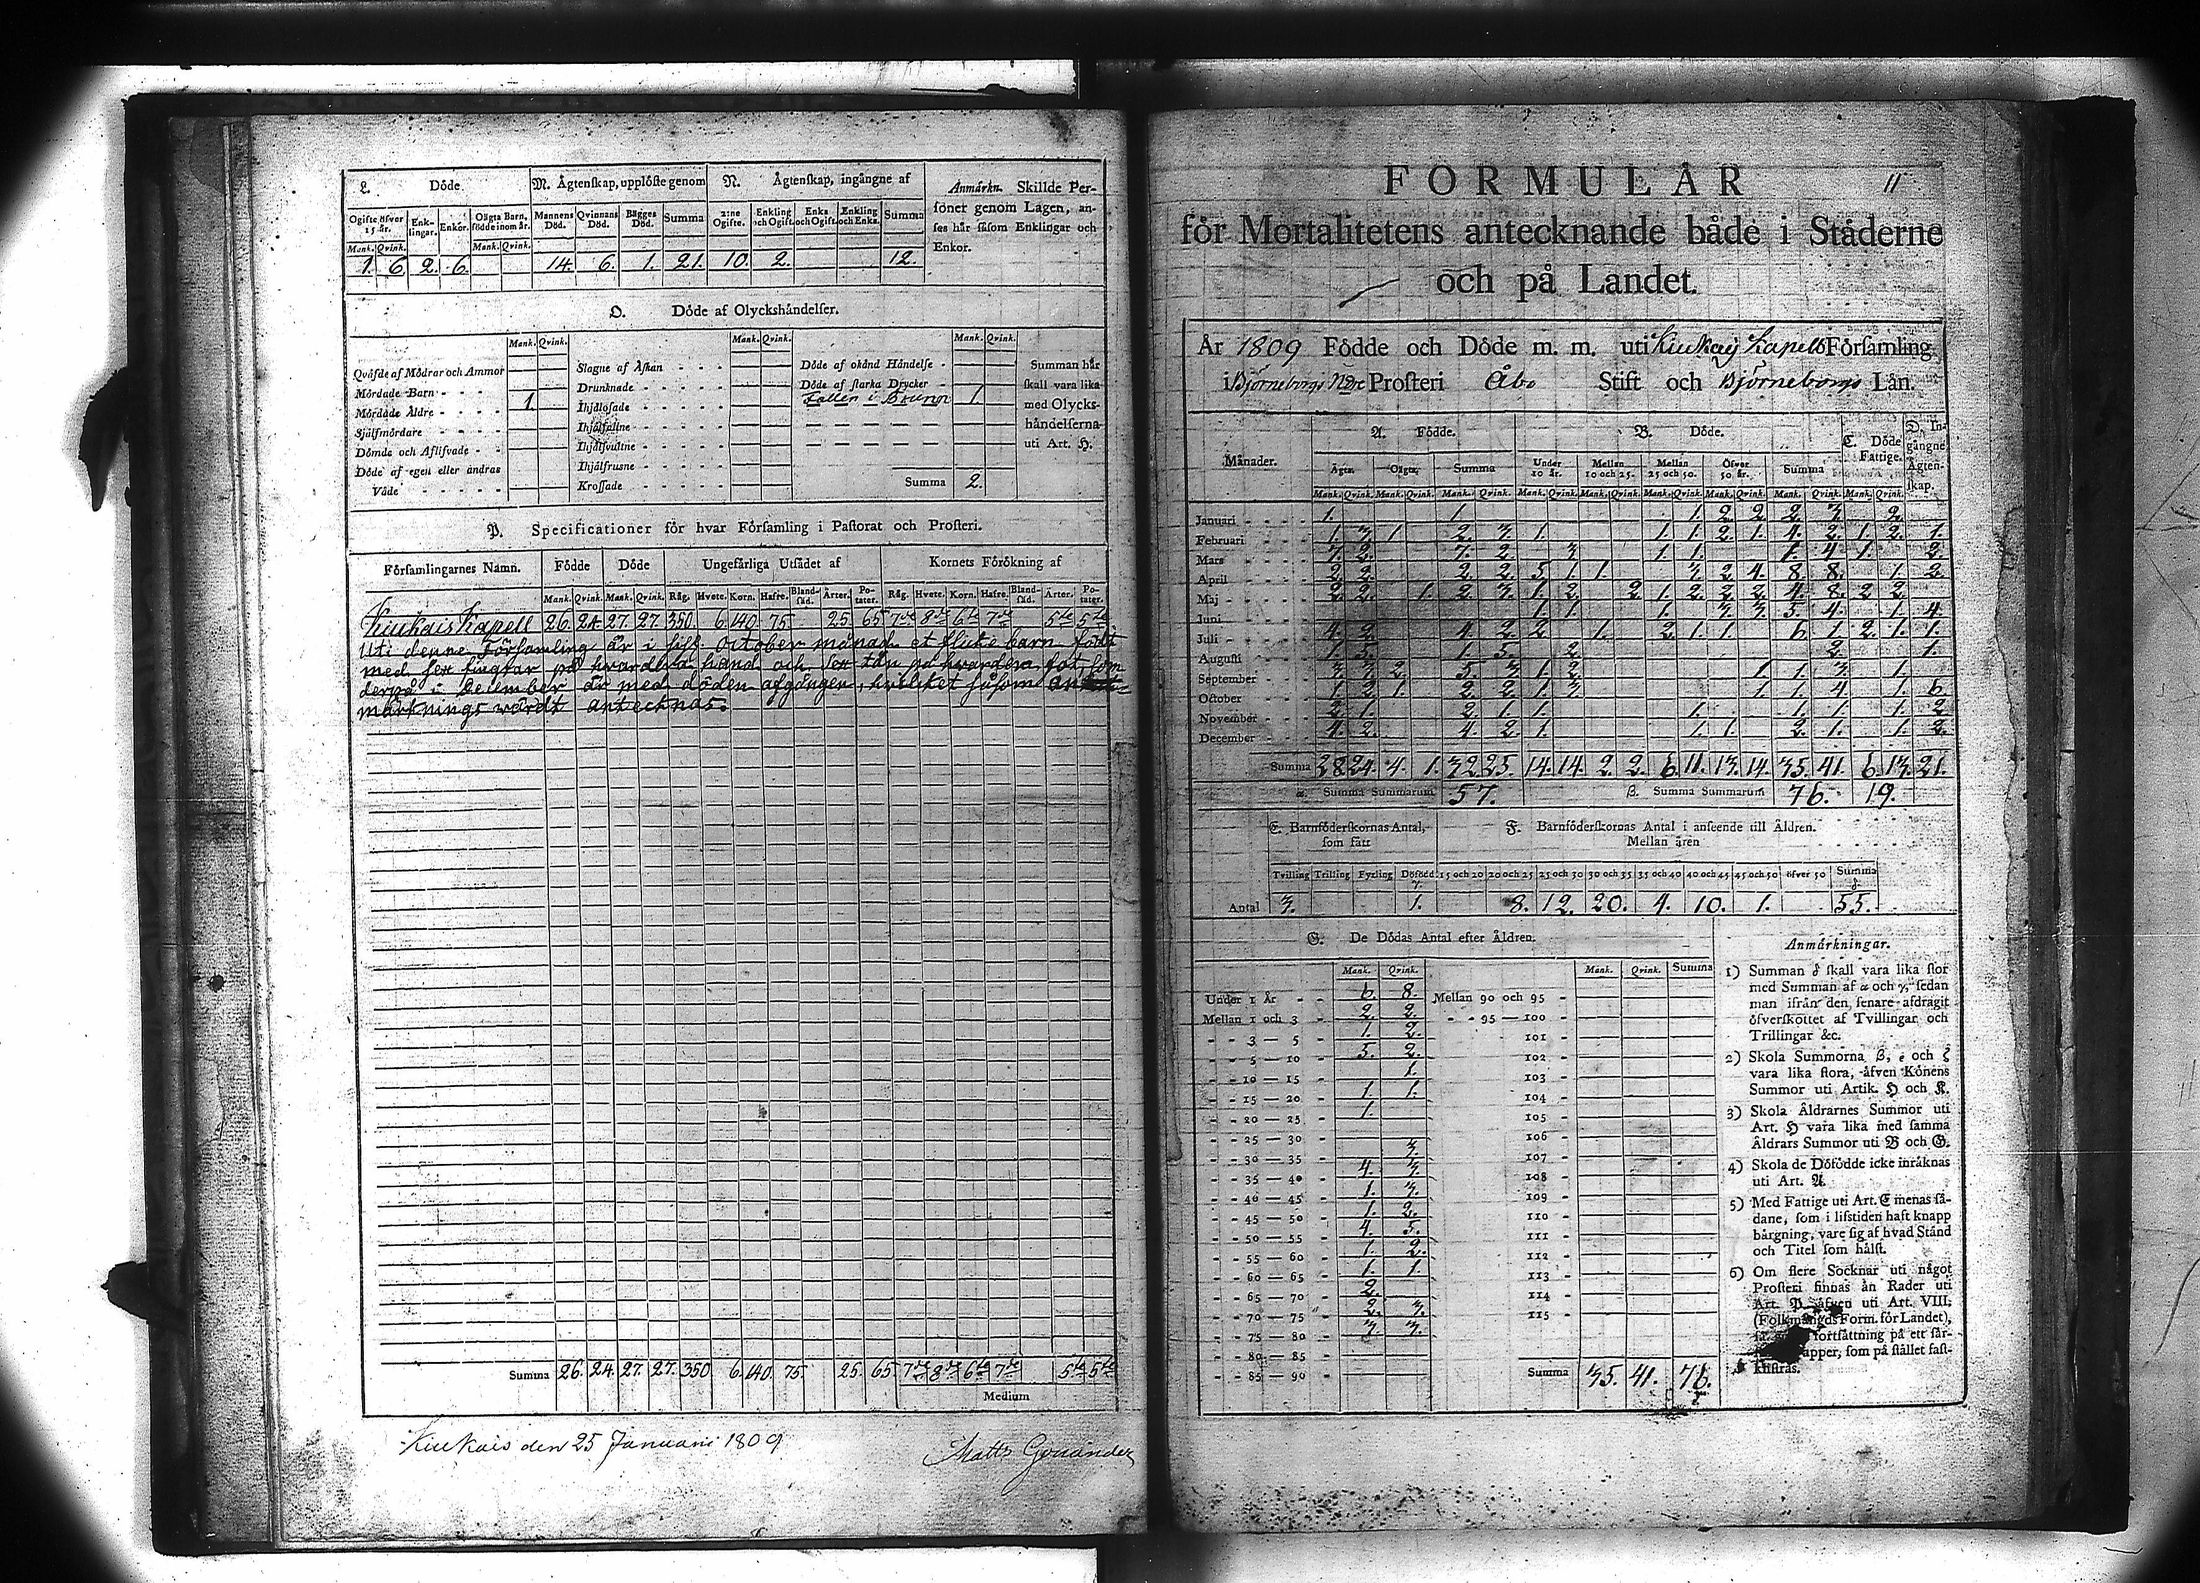 L. Döde. M. Ägtenskap, upplöste genom N. Ägtenskap, ingångne af Anmärkn. Skillde Personer genom Lagen, anses här såsom Enklingar och Enkor.
Ogifte öfver 15 år. Enklingar. Enkor. Oägta Barn, födde inom år. Mannens Död. Qvinnans Död. Bägges Död. Summa 2:ne Ogifte. Enkling och Ogift. Enka och Ogift. Enkling och Enka. Summa
Mank. Qvink. Mank. Qvink.
1. 6. 2. 6. 14. 6. 1. 21. 10. 2. 12.
O. Döde af Olyckshändelser.
Mank. Qvink. Mank. Qvink. Mank. Qvink.
Qväfde af Mödrar och Ammor
Mördade Barn
Mördade Äldre 1.
Självmördare
Dömde och Aflifvade
Döde af egen eller andras
Våde
Slagne af Åskan
Drunknade
Ihjälösade
Ihjälfallne
Ihjälsvultne
Ihjälfrusne
Krossade
Döde af okänd Händelse
Döde af starka Drycker
Fallen i Brunor 1.
Summa 2.
Summan här
skall vara lika
med Olycks-
händelserna
uti Art. H.
P. Specificationer för hvar Församling i Pastorat och Prosteri.
Församlingarnes Namn. Födde Döde Ungefärliga Utsädet af Kornets Förökning af
Mank. Qvink. Mank. Qvink. Råg. Hvete. Korn. Hafre. Bland-säd. Ärter. Po-tater. Råg. Hvete. Korn. Hafre. Bland-säd. Ärter. Po-tater.
Kiukais Kapell 26. 24. 27. 27. 350. 6. 140. 75. 25. 65. 7de 8de 6te 7de 5te 5te
Uti denne Församling är i sist. October månad et flicke barn födt
med sex fingrar på hvardera hand och sex tår på hvardera fot, som
derpå i December är med döden afgången, hvilket såsom an
märknings wärdt antecknas.
Summa 26. 24. 27. 27. 350 6. 140. 75. 25. 65. 7de 8de 6te 7de 5te 5te
Medium
Kiukais den 25 Januarii 1809
Matts
FORMULÄR 11
för Mortalitetens antecknande både i Städerne
och på Landet.
År 1809 Födde och Döde m. m. uti Kiukais Kapells Församling
i Björneborgs Nedre Prosteri Åbo Stift och Björneborgs Län.
Månader. A. Födde. B. Döde. C. Döde Fattige. D. Ingångne Ägtenskap.
Ägta. Oägta. Summa Under 10 år. Mellan 10 och 25. Mellan 25 och 50. Öfver 50 år. Summa
Mank. Qvink. Mank. Qvink. Mank. Qvink. Mank. Qvink. Mank. Qvink. Mank. Qvink. Mank. Qvink. Mank. Qvink. Mank. Qvink.
Januari 1. 1. 1. 2. 2. 2. 3. 2.
Februari 1. 3. 1 2. 3. 1. 1. 1. 2. 1. 4. 2. 1. 2. 1.
Mars 7. 2. 7. 2. 3. 1. 1. 1. 4. 1. 2.
April 2. 2. 2. 2. 5. 1. 1. 3. 2. 4. 8. 8. 1. 2.
Maj 2. 2. 1. 2. 3. 1. 2. 2. 1. 2. 2. 2. 4. 8. 2. 2.
Juni 1. 1. 1. 3. 3. 5. 4. 1. 4.
Juli 4. 2. 4. 2. 2. 1. 2. 1. 1. 6. 1. 2. 1. 1.
Augusti 1. 5. 1. 5. 2. 2. 1.
September 3. 3. 2. 5. 3. 1. 2. 1. 1. 3. 1.
October 1. 2. 1. 2. 2. 1. 3. 1. 1. 4. 1. 6.
November 2. 1. 2. 1. 1. 1. 1. 1. 1. 2.
December 4. 2. 4. 2. 1. 1. 1. 2. 1. 1. 2.
Summa 28. 24. 4. 1. 32. 25. 14. 14. 2. 2. 6. 11. 13. 14. 35. 41. 6. 13. 21.
α Summa Summarum 57. β. Summa Summarum 76. 19.
E. Barnföderskornas Antal, som fått F. Barnföderskornas Antal i anseende till Åldren.
Mellan åren
Tvilling Trilling Fyrling Dödfödd 15 och 20 20 och 25 25 och 30 30 och 35 35 och 40 40 och 45 45 och 50 öfver 50 Summa
γ. δ
Antal 3. 1. 8. 12. 20. 4. 10. 1. 55.
G. De Dödas Antal efter Åldren.
Mank. Qvink. Mank. Qvink. Summa
Under 1 År 6. 8. Mellan 90 och 95
Mellan 1 och 3 2. 2. 95 — 100
3 — 5 1. 2. 101
5 — 10 5. 2. 102
10 — 15 1. 103
15 — 20 1. 1. 104
20 — 25 1. 105
25 — 30 106
30 — 35 3. 107
35 — 40 4. 3. 108
40 — 45 1. 3. 109
45 — 50 1. 2. 110
50 — 55 4. 5. 111
55 — 60 1. 2. 112
60 — 65 1. 1. 113
65 — 70 2. 114
70 — 75 2. 3. 115
75 — 80 3. 3.
80 — 85
85 — 90 Summa 35. 41. 76.
Anmärkningar.
1) Summan δ skall vara lika stor
med Summan af α och γ, sedan
man ifrån den senare afdragit
öfverskottet af Tvillingar och
Trillingar &c.
2) Skola Summorna β, ε och ζ
vara lika stora, äfven Könens
Summor uti Artik. H och K.
3) Skola Åldrarnes Summor uti
Art. H vara lika med samma
Åldrars Summor uti B och G.
4) Skola de Döfödde icke inräknas
uti Art. A.
5) Med Fattige uti Art. C menas så-
dane, som i lifstiden haft knapp
bärgning, vare sig af hvad Stånd
och Titel som hälst.
6) Om flere Socknar uti något
Prosteri finnas än Rader uti
Art. P. äfven uti Art. VIII,
(Folkmängds Form. för Landet),
fortsättning på ett sär-
papper, som på stället fast-
klistras.